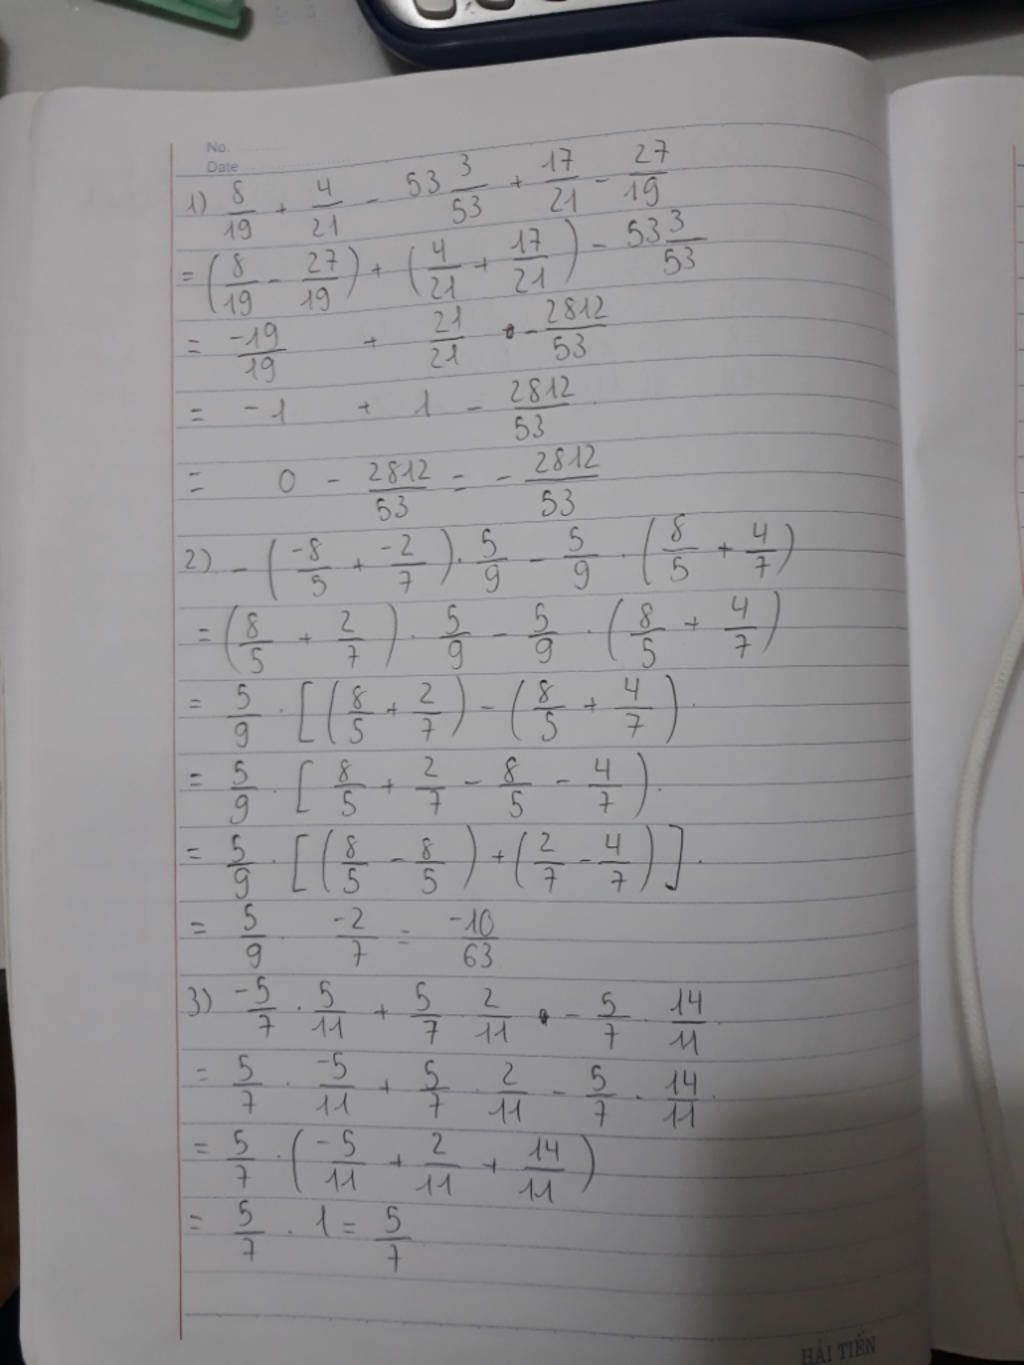 No.
Date
1) 8/19 + 4/21 - 53 3/53 + 17/21 - 27/19
= (8/19 - 27/19) + (4/21 + 17/21) - 53 3/53
= -19/19 + 21/21 - 2812/53
= -1 + 1 - 2812/53
= 0 - 2812/53 = - 2812/53
2) - (-8/5 + -2/7) . 5/9 - 5/9 . (8/5 + 4/7)
= (8/5 + 2/7) . 5/9 - 5/9 . (8/5 + 4/7)
= 5/9 . [(8/5 + 2/7) - (8/5 + 4/7) .
= 5/9 . [8/5 + 2/7 - 8/5 - 4/7) .
= 5/9 . [(8/5 - 8/5) + (2/7 - 4/7)] .
= 5/9 . -2/7 = -10/63
3) -5/7 . 5/11 + 5/7 . 2/11 - 5/7 . 14/11
= 5/7 . -5/11 + 5/7 . 2/11 - 5/7 . 14/11 .
= 5/7 . (-5/11 + 2/11 + 14/11)
= 5/7 . 1 = 5/7
HẢI TIẾN